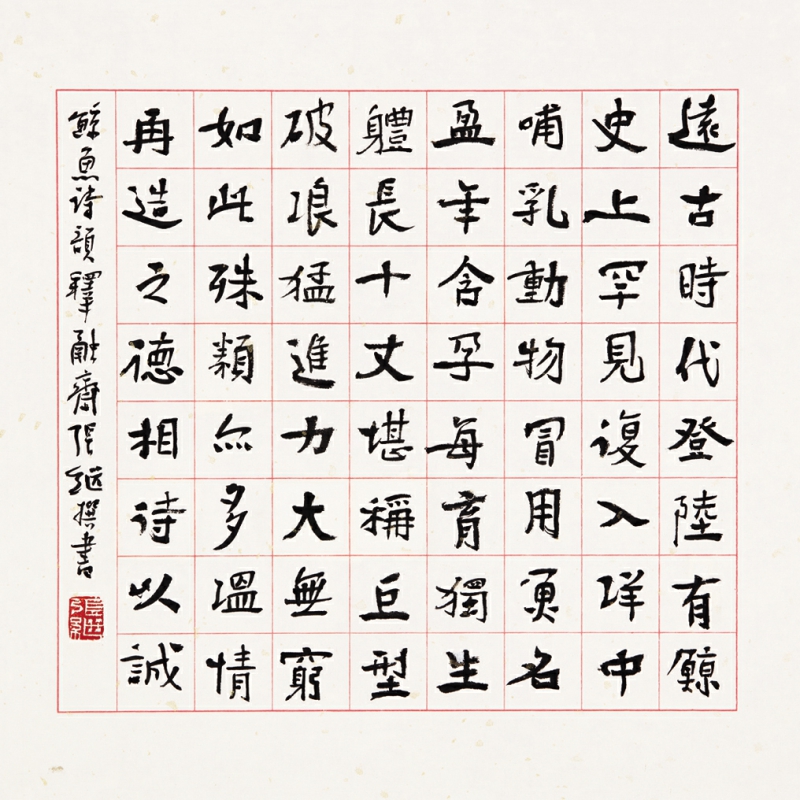 遠古時代登陸有鯨
史上罕見復入洋中
哺乳動物冒用魚名
盈年含孕每育獨生
體長十丈堪稱巨型
破浪猛進力大無窮
如此殊類亦多溫情
再造之德相待以誠
鯨魚詩韻釋 齋張繼撰書